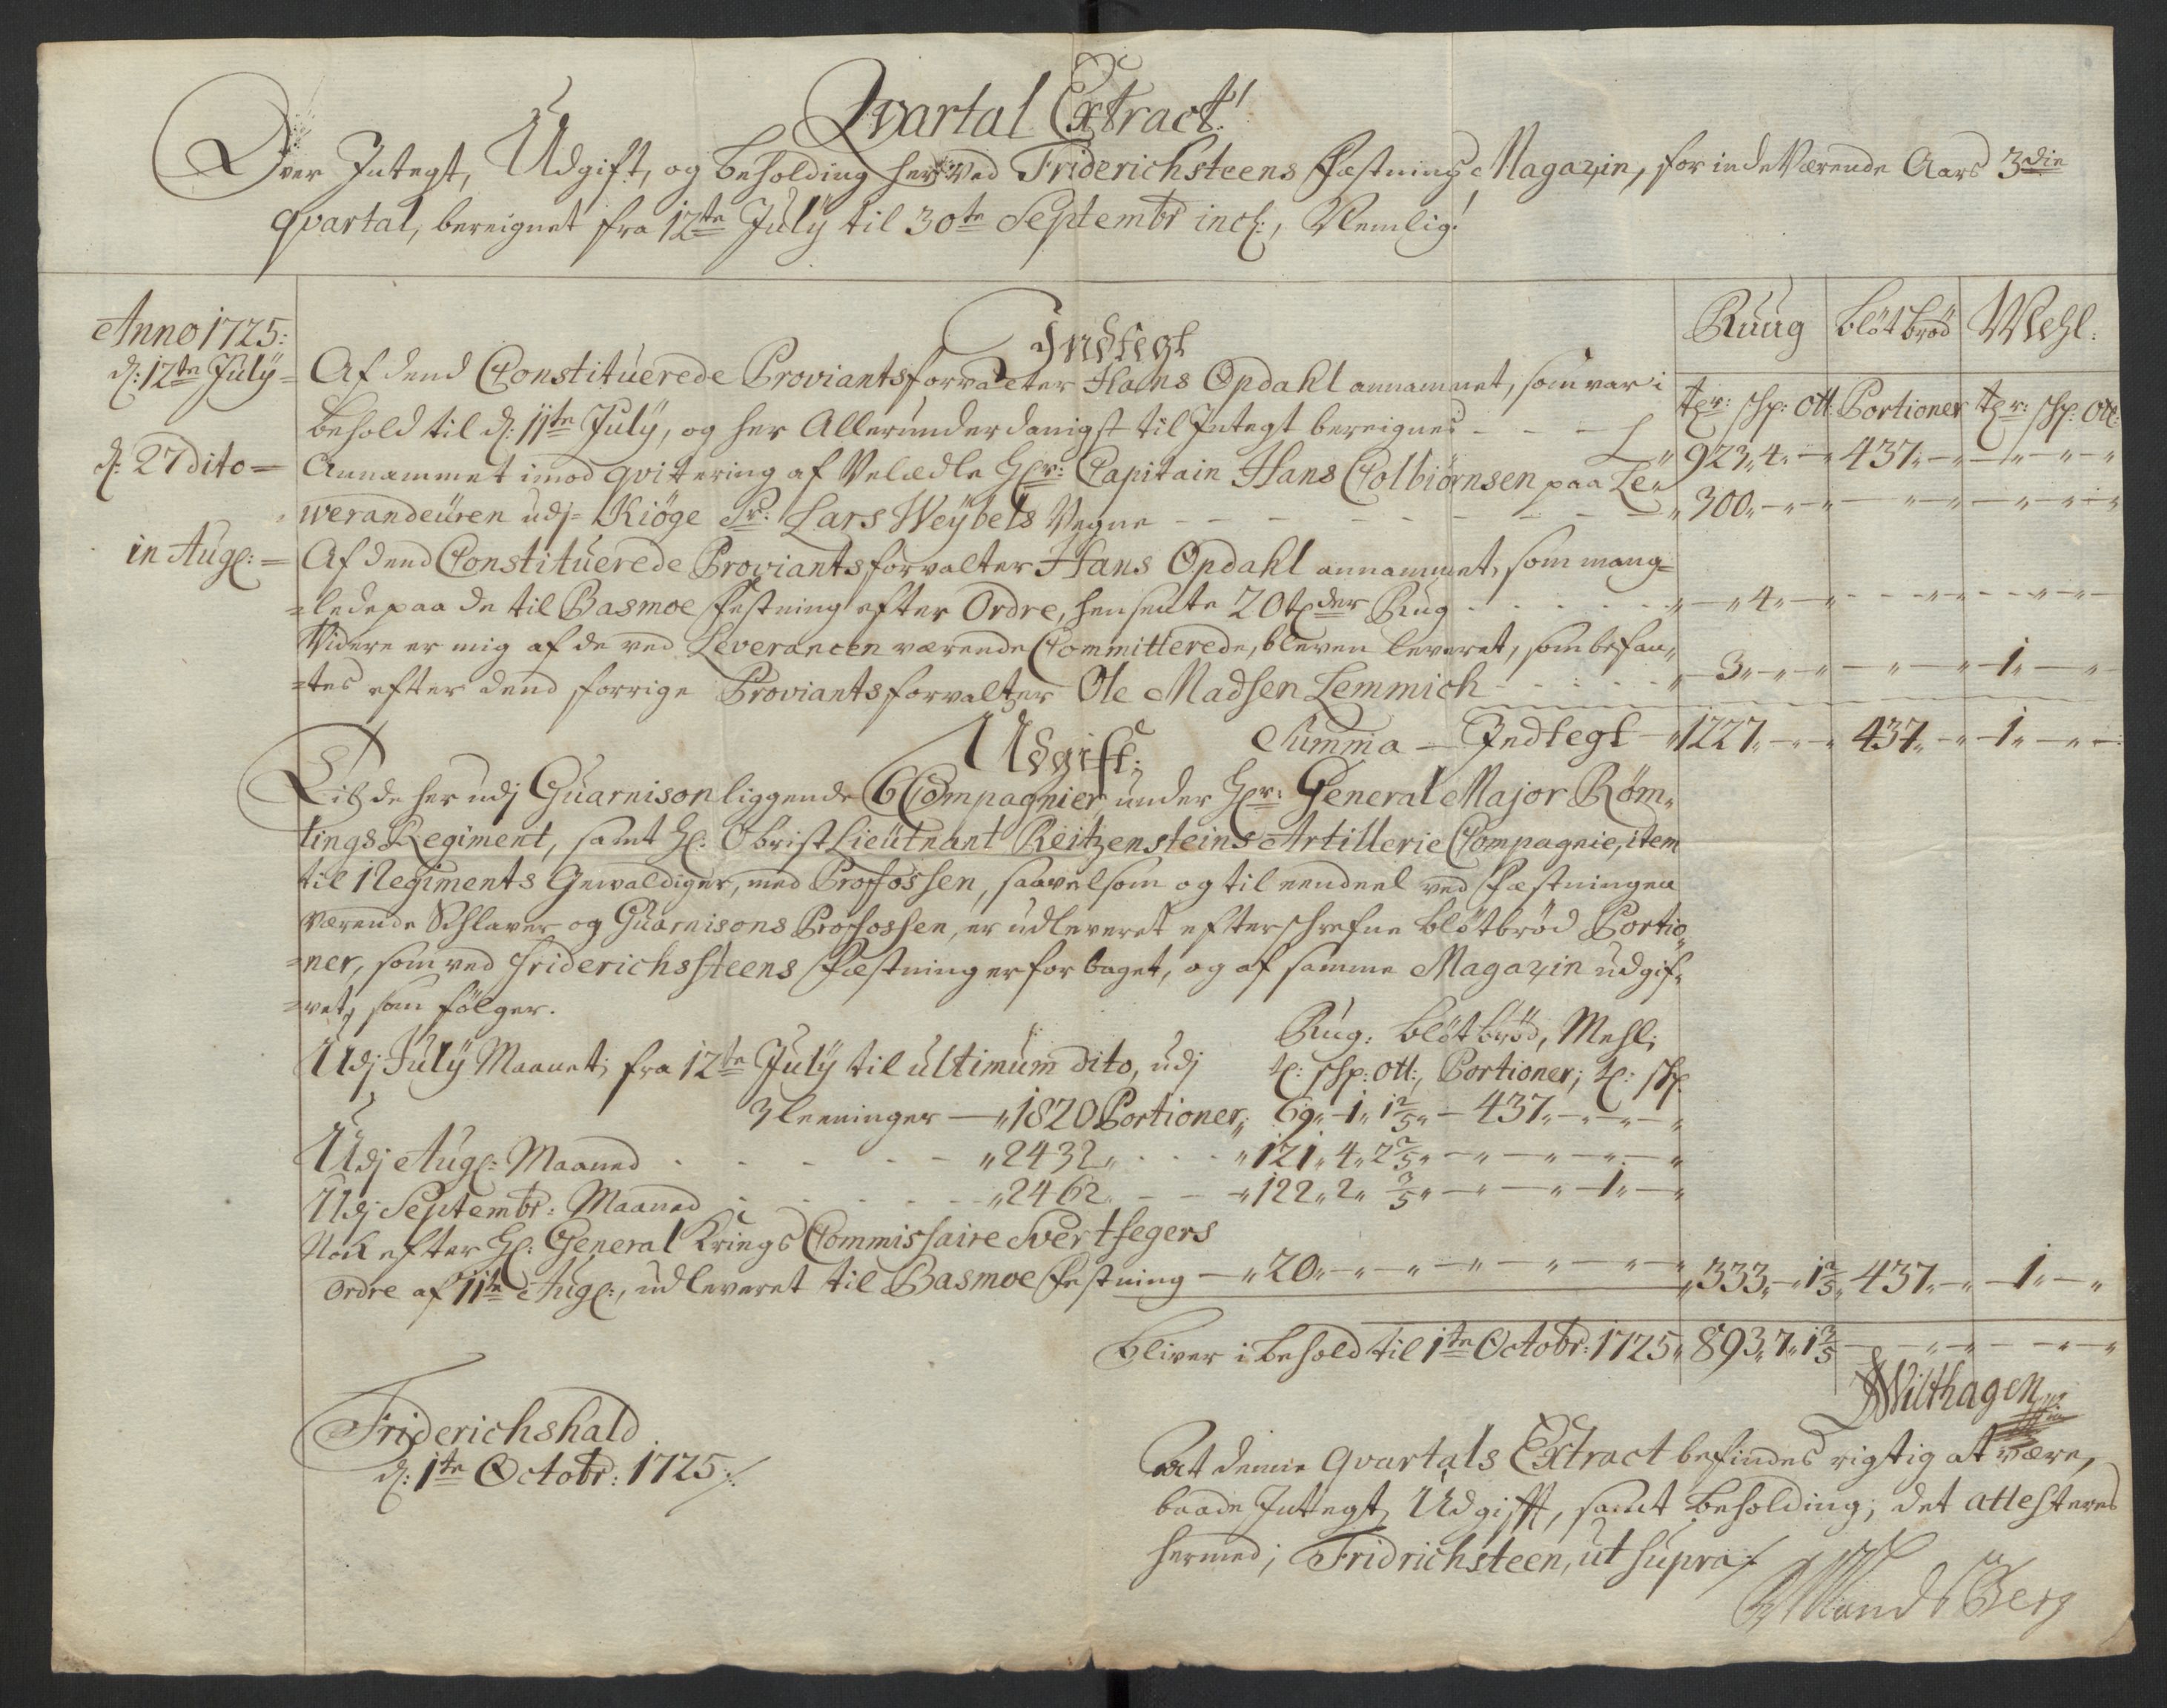 Qvartal Extract!
Over Indtegt, Udgift, og beholding her ved Friderichsteens Fæstnings Magazin, for indeværende Aars 3die
qvartal, bereignet fra 12te Julÿ til 30te Septembr incl:, Nemlig!
Ruug bløtbrød Mehl:
Anno 1725: Indtegt
d: 12te Julÿ = Af dend Constituerede Proviantsforvalter Hans Opdahl annammet, som var i
tr: shp: ott: Portioner tr: shp: ott:
behold til d: 11te Julÿ, og her Allerunderdanigst til Indtegt bereignes - - - „ 923„ 4„ — 437„ — „ — „ —
d: 27 dito = Annammet imod qvitering af Velædle Hr: Capitain Hans Colbiørnsen paa Le„
werandeuren udj Kiöge Sr: Lars Weÿbels Vegne - - - - - „ 300„ — „ — „ — „ —
in Aug: = Af dend Constituerede Proviantsforvalter Hans Opdahl annammet, som mang=
=lede paa de til Basmoe Festning efter Ordre, hensente 20 tder Rug - - - - „ — „ 4„ — „ — „ —
Videre er mig af de ved Leverancen værende Committerede, bleven leveret, som befan„
=tes efter dend forrige Proviantsforvalter Ole Madsen Lemmich - - - - „ 3„ — „ — „ — „ 1„ — „
Summa — Indtegt „ 1227„ — „ — 437„ — „ 1„ — „
Udgift;
Til de her udj Guarnison liggende 6 Compagnier under Hr: General Major Röm„
lings Regiment, samt H: Obrist Lieutnant Reitzensteins Artillerie Compagnie, item
til 1 Regiments Gewaldiger, med Proffossen, saavelsom og til eendeel ved Fæstningen
værende Schlaver og Guarnisons Proffossen, er udleveret efterschrefne bløtbrød Portio„
=ner, som ved Friderichssteens Fæstning er forbaget, og af samme Magazin udgif„
=vet, som fölger.
Rug: bløtbrød, Mehl;
Udj Julÿ Maanet; fra 12te Julÿ til ultimum dito, udj t: shp: ott:, Portioner; t: shp:
3 leeninger — „ 1820 Portioner; 69„ 1„ 1 2/5„ — 437„ — „ — „
Udj Aug: Maaned - - - - - „ 2432„ - - - „ 121„ 4„ 2 2/5„ — „ — „ — „
Udj Septembr: Maaned - - - - - „ 2462 - - - „ 122„ 2„ 3/5„ — „ — „ 1„ — „
Nock efter H: General Krigs Commissaire Svertfegers
Ordre af 11te Aug:, udleveret til Basmoe Festning — „ 20„ — „ — „ — „ — „ 333„ — „ 1 2/5„ 437„ — „ 1„ — „
bliver i behold til 1te Octobr: 1725 „ 893„ 7„ 1 3/5 — „ — „ — „
Wilthagen
Friderichshald
d: 1te Octobr: 1725 ./.
at denne Qvartals Extract befindes rigtig at være,
baade Indtegt, Udgifft, samt beholding; det attesteres
hermed; Fridrichsteen, ut supra ./.
Berg